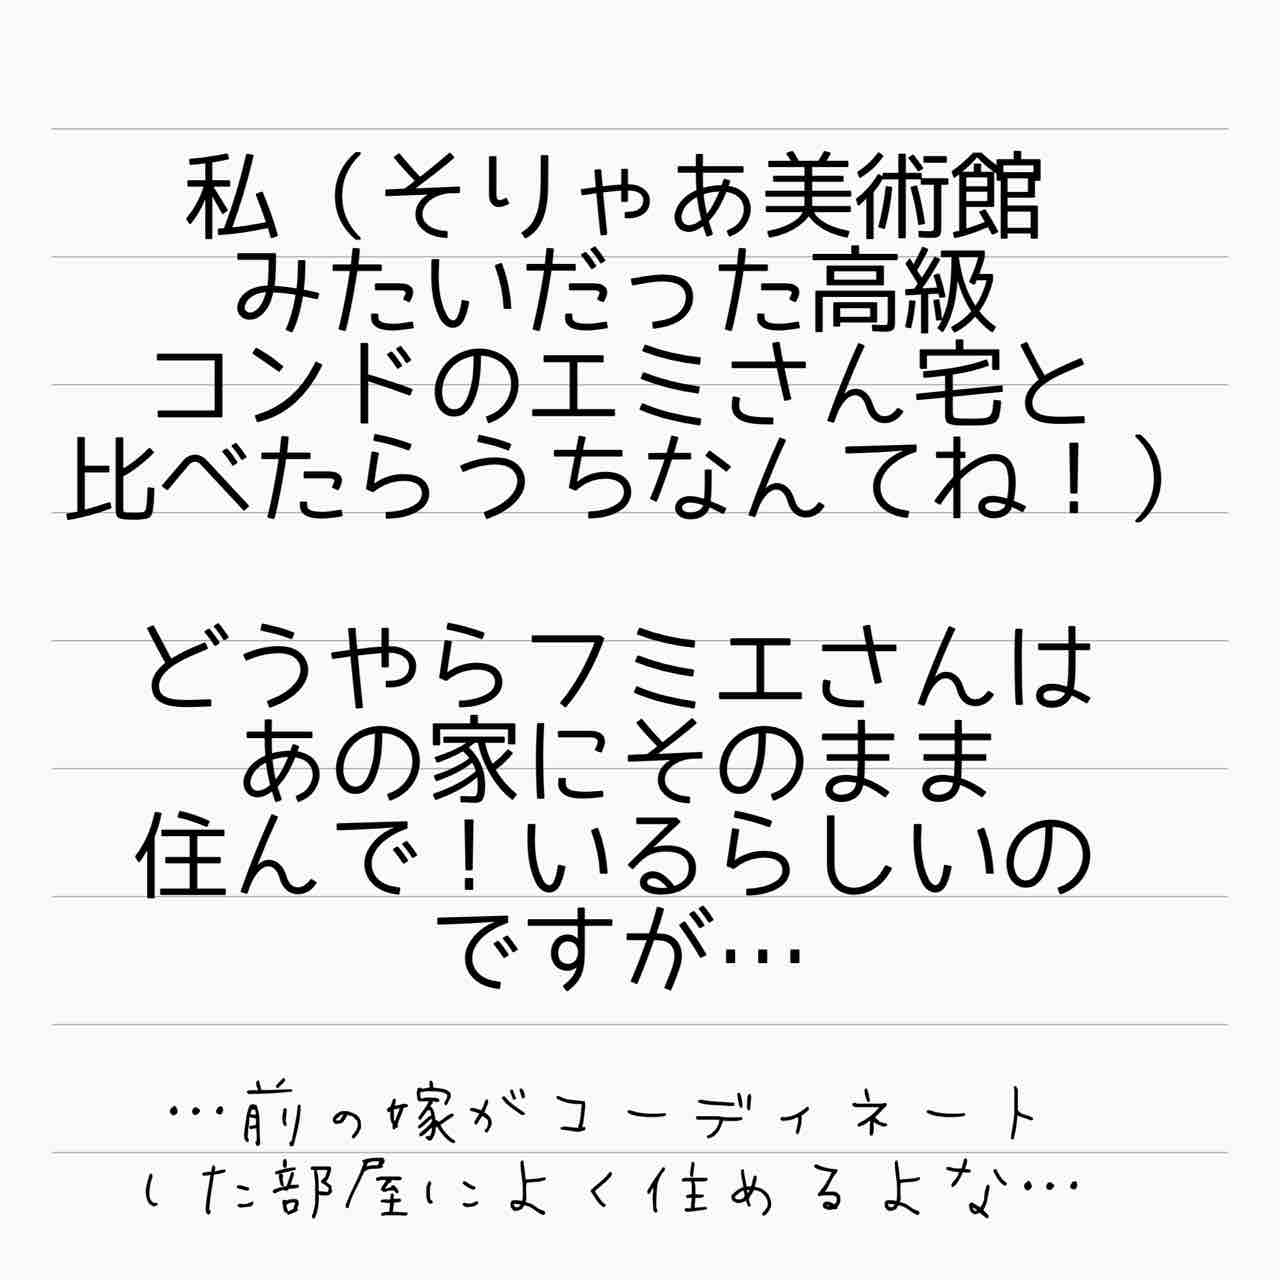 私（そりゃあ美術館
みたいだった高級
コンドのエミさん宅と
比べたらうちなんてね！）
どうやらフミエさんは
あの家にそのまま
住んで！いるらしいの
ですが…
…前の嫁がコーディネート
した部屋によく住めるよな…